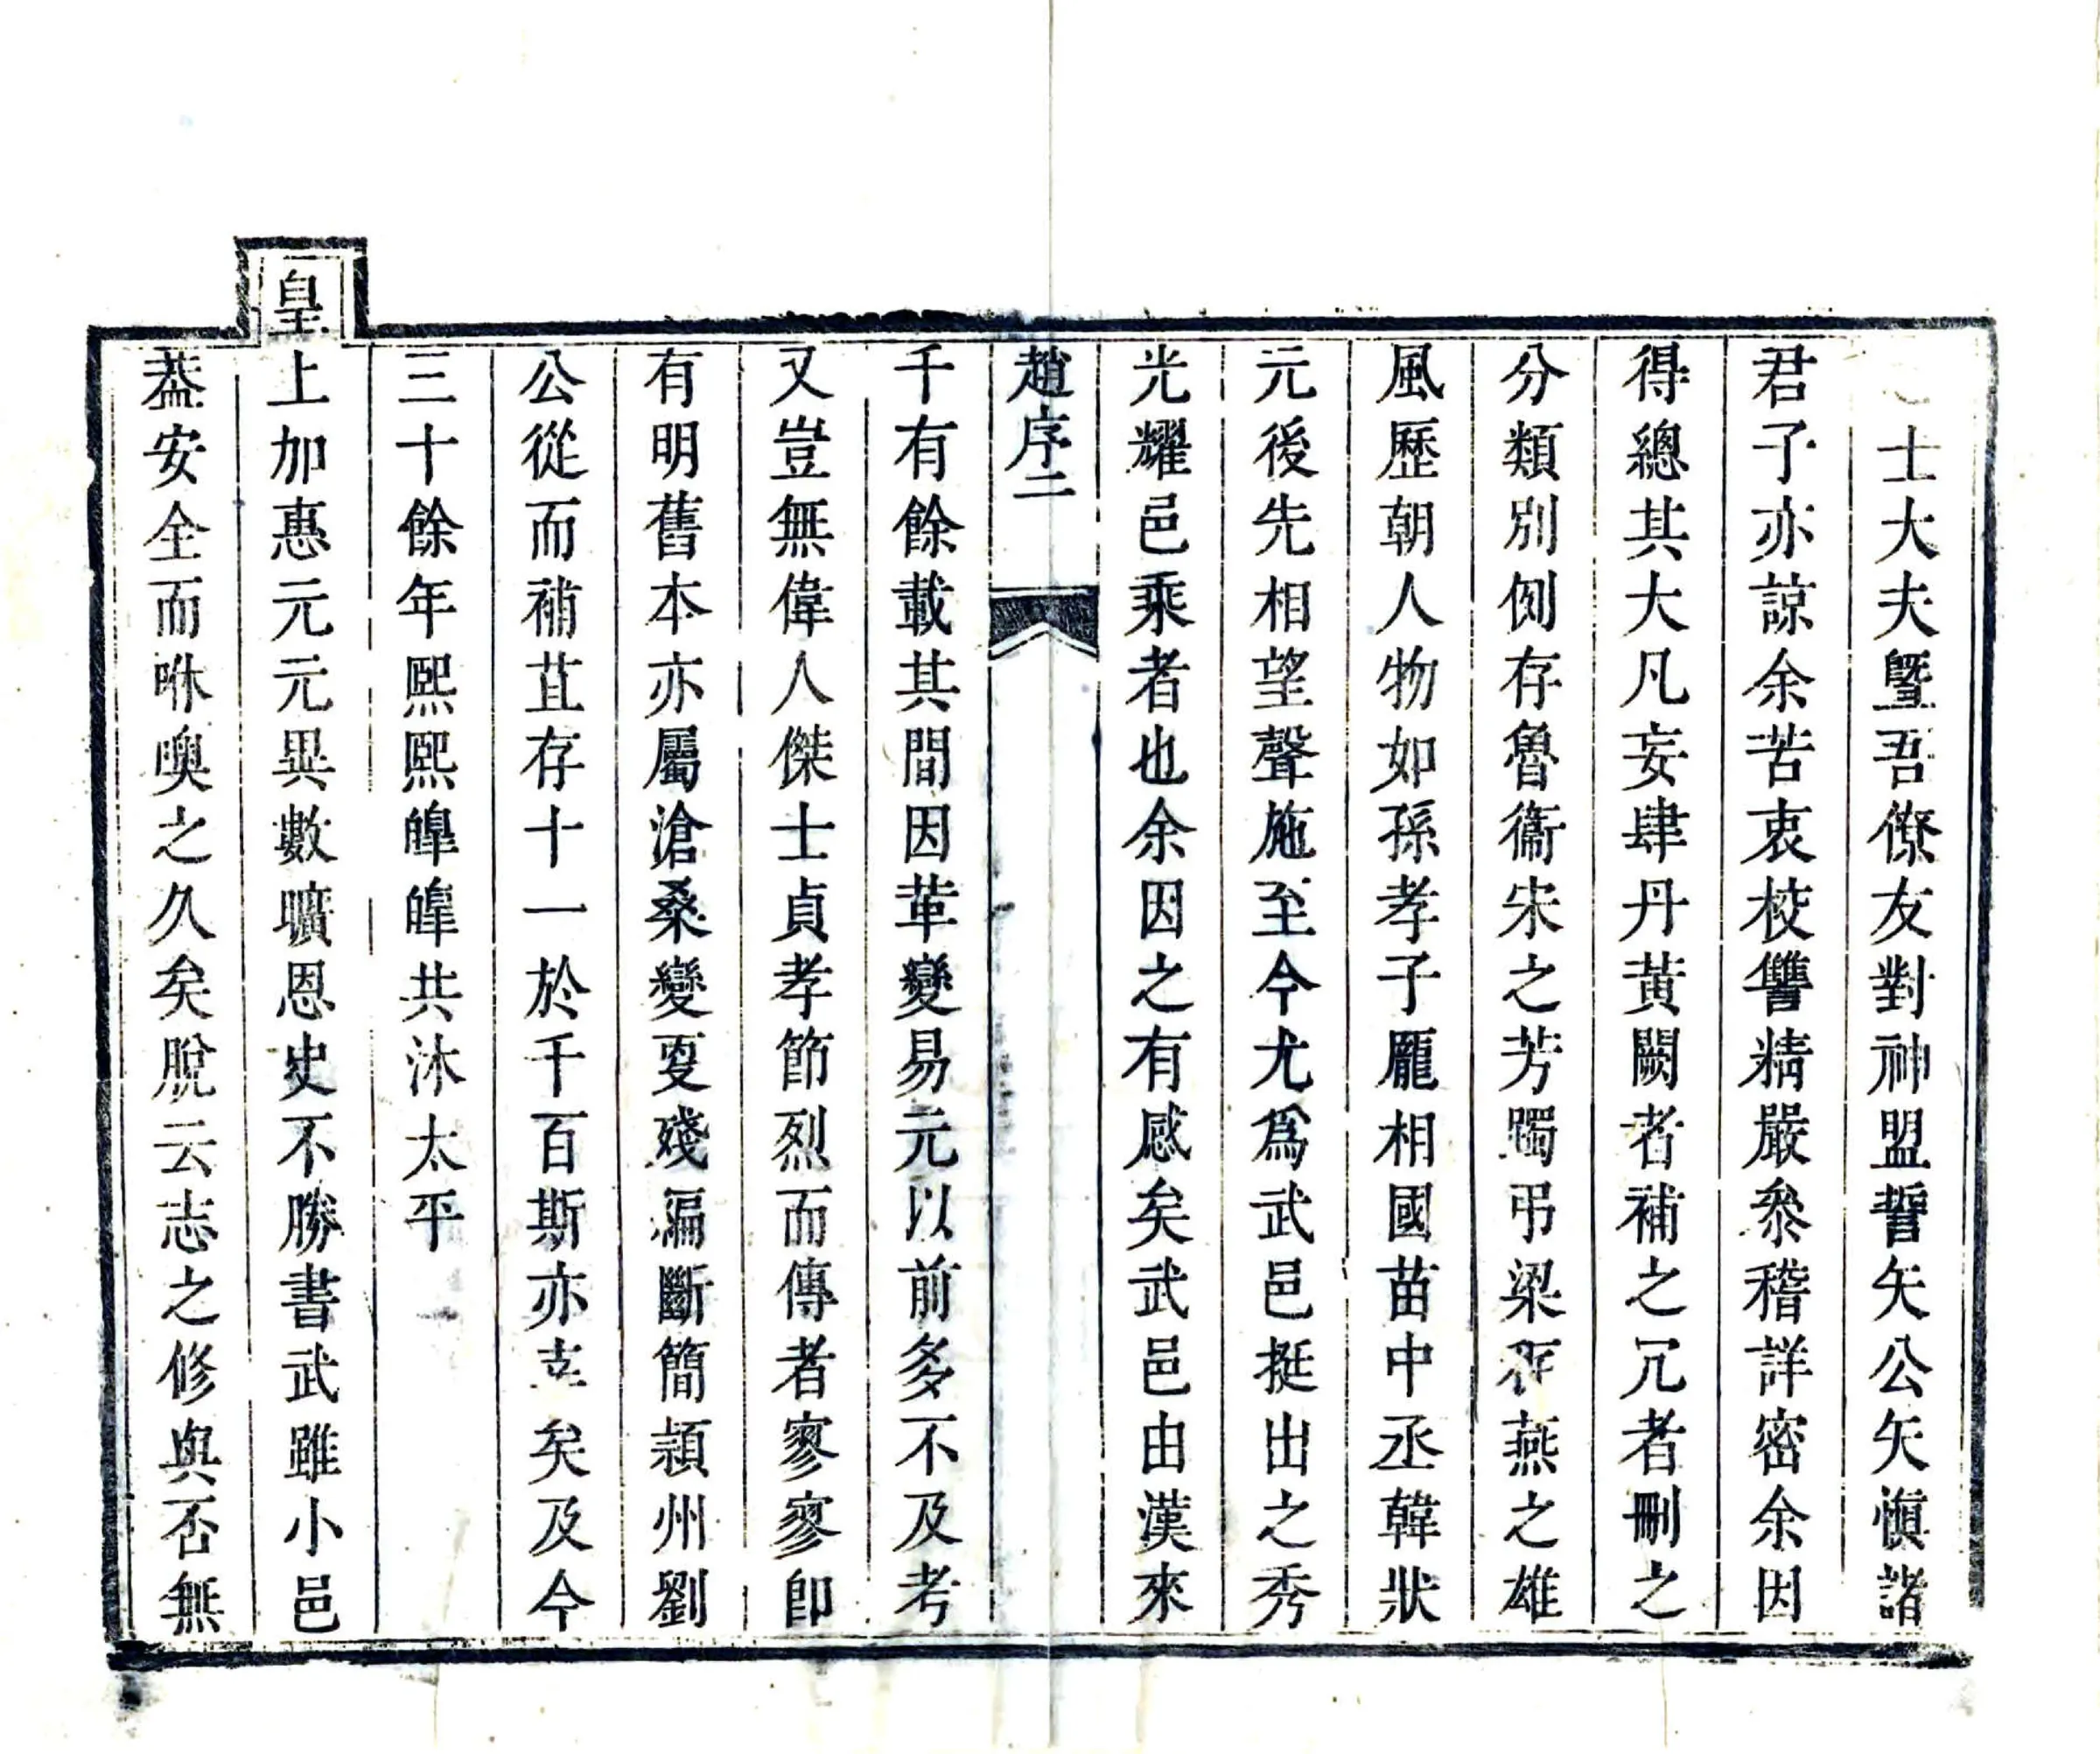 士大夫曁吾僚友對神盟誓矢公矢愼諸
君子亦諒余苦衷校讐精嚴叅稽詳密余因
得總其大凡妄肆丹黃闕者補之冗者刪之
分類別例存魯衞宋之芳躅弔梁燕之雄
風歷朝人物如孫孝子龐相國苗中丞韓狀
元後先相望聲施至今尤爲武邑挺出之秀
光耀邑乘者也余因之有感矣武邑由漢來
趙序二
千有餘載其間因革變易元以前多不及考
又豈無偉人傑士貞孝節烈而傳者寥寥卽
有明舊本亦屬滄桑變更殘漏斷簡潁州劉
公從而補苴存十一於千百斯亦幸矣及今
三十餘年熙熙皥皥共沐太平
皇上加惠元元異數曠恩史不勝書武雖小邑
葢安全而咻噢之久矣脫云志之修與否無